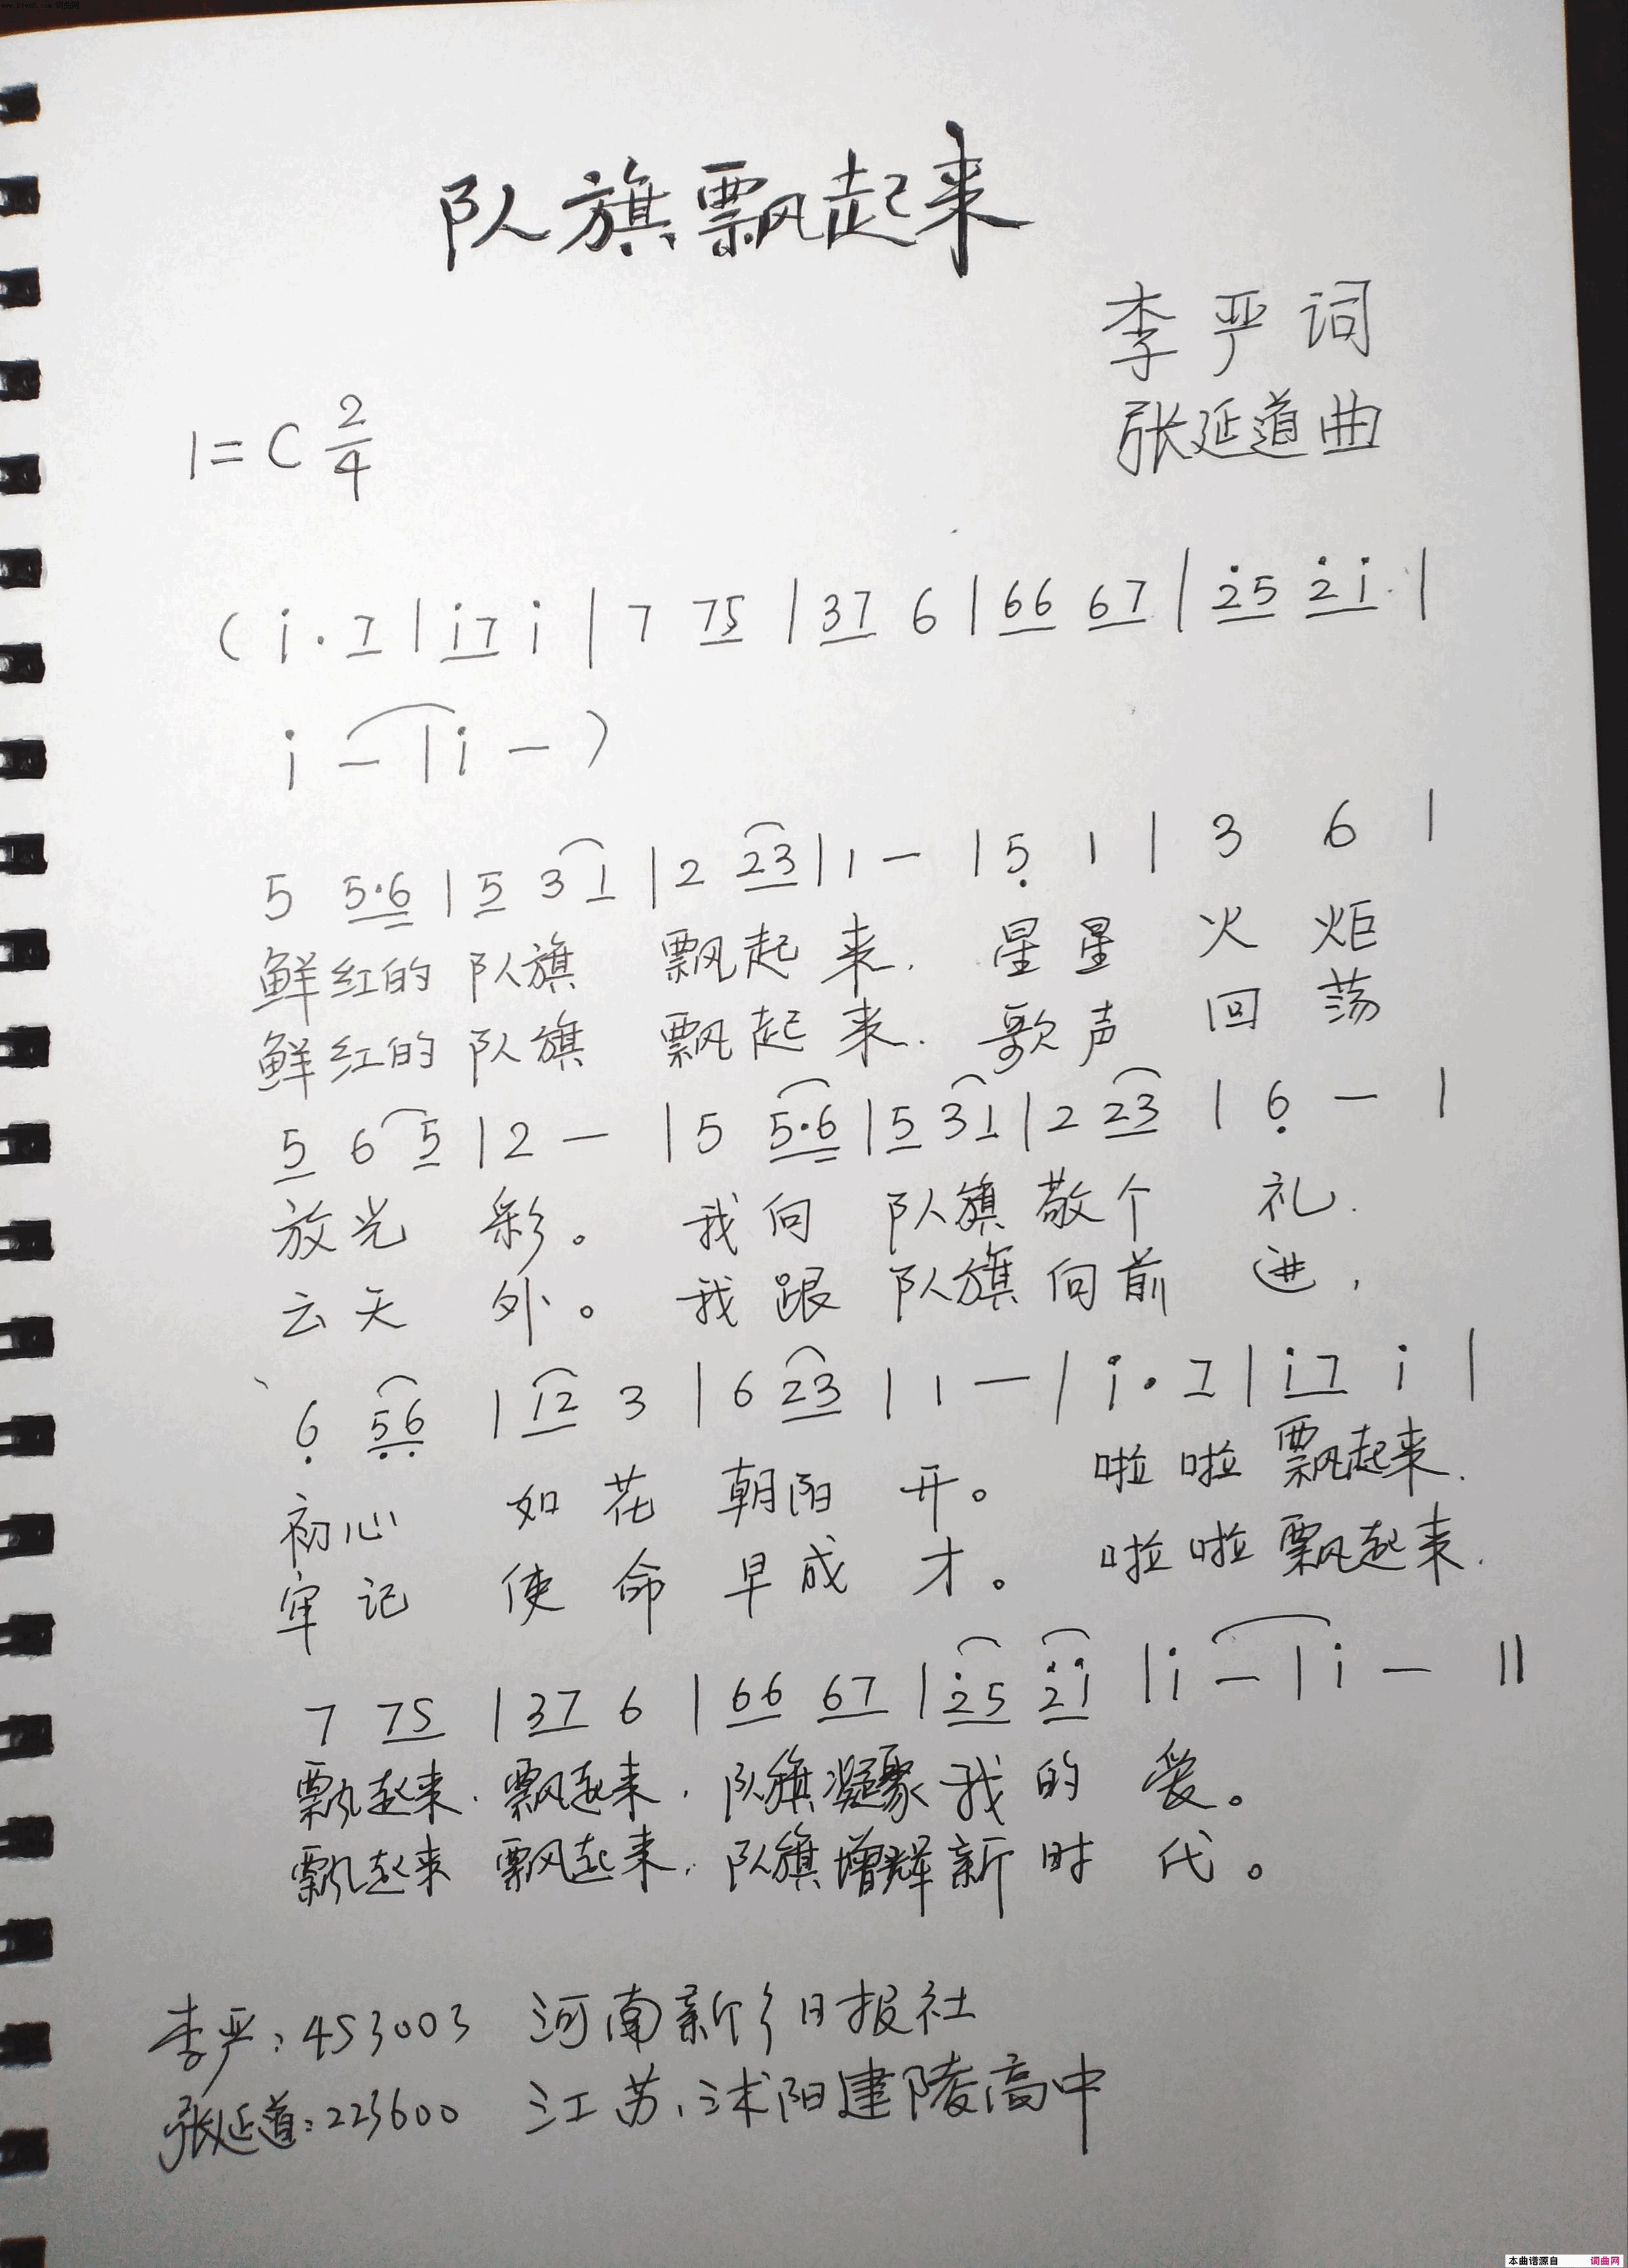 队旗飘起来
李严词
张延道曲
1=C 2/4
(i̇ . 7 | i̇7 i̇ | 7 75 | 37 6 | 66 67 | 2̇5 2̇i̇ |
i̇ – | i̇ – )
5 5·6 | 5 3 1 | 2 23 | 1 – | 5̣ 1 | 3 6 |
鲜红的 队旗 飘起来. 星星 火炬
鲜红的 队旗 飘起来. 歌声 回荡
5 6 5 | 2 – | 5 5·6 | 5 3 1 | 2 23 | 6̣ – |
放光 彩。 我向 队旗敬个 礼.
云天 外。 我跟 队旗向前 进,
6̣ 5̣6̣ | 12 3 | 6 23 | 1 – | i̇ . 7 | i̇7 i̇ |
初心 如花 朝阳 开。 啦啦 飘起来.
牢记 使命 早成 才。 啦啦 飘起来.
7 75 | 37 6 | 66 67 | 2̇5 2̇i̇ | i̇ – | i̇ – ‖
飘起来. 飘起来. 队旗凝聚我的 爱。
飘起来 飘起来. 队旗增辉新时 代。
李严: 453003 河南新乡日报社
张延道: 223600 江苏、沭阳建陵高中
本曲谱源自 词曲网